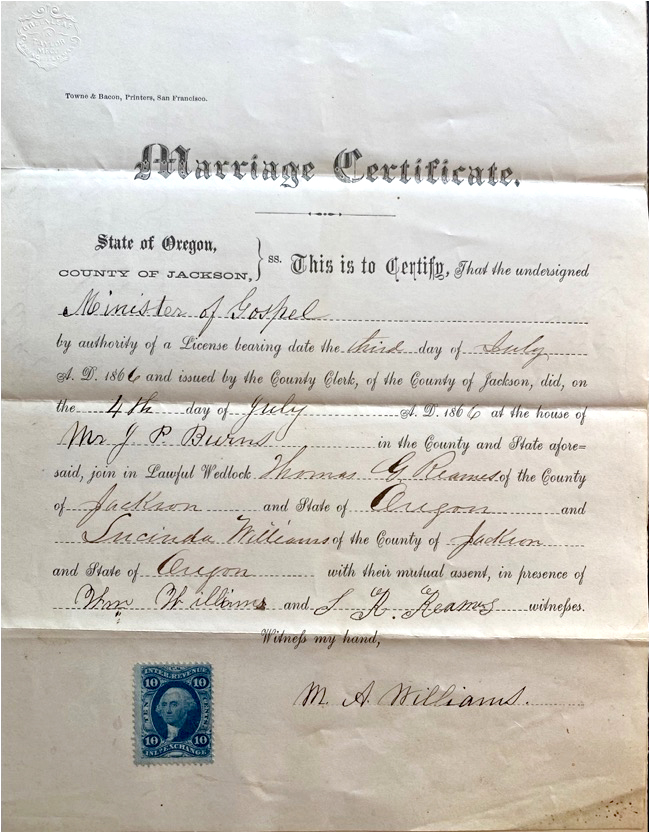 Towne & Bacon, Printers, San Francisco.
Marriage Certificate.
State of Oregon,
COUNTY OF JACKSON, } ss. This is to Certify, That the undersigned
Minister of Gospel
by authority of a License bearing date the third day of July
A. D. 1866 and issued by the County Clerk, of the County of Jackson, did, on
the 4th day of July A. D. 1866 at the house of
Mr J P Burns in the County and State afore=
said, join in Lawful Wedlock Thomas G Reames of the County
of Jackson and State of Oregon and
Lucinda Williams of the County of Jackson
and State of Oregon with their mutual assent, in presence of
Wm Williams and L R. Reames witnesses.
Witness my hand,
M. A. Williams.
INTER. REVENUE
10 10
TEN CENTS
10 10
INL. EXCHANGE